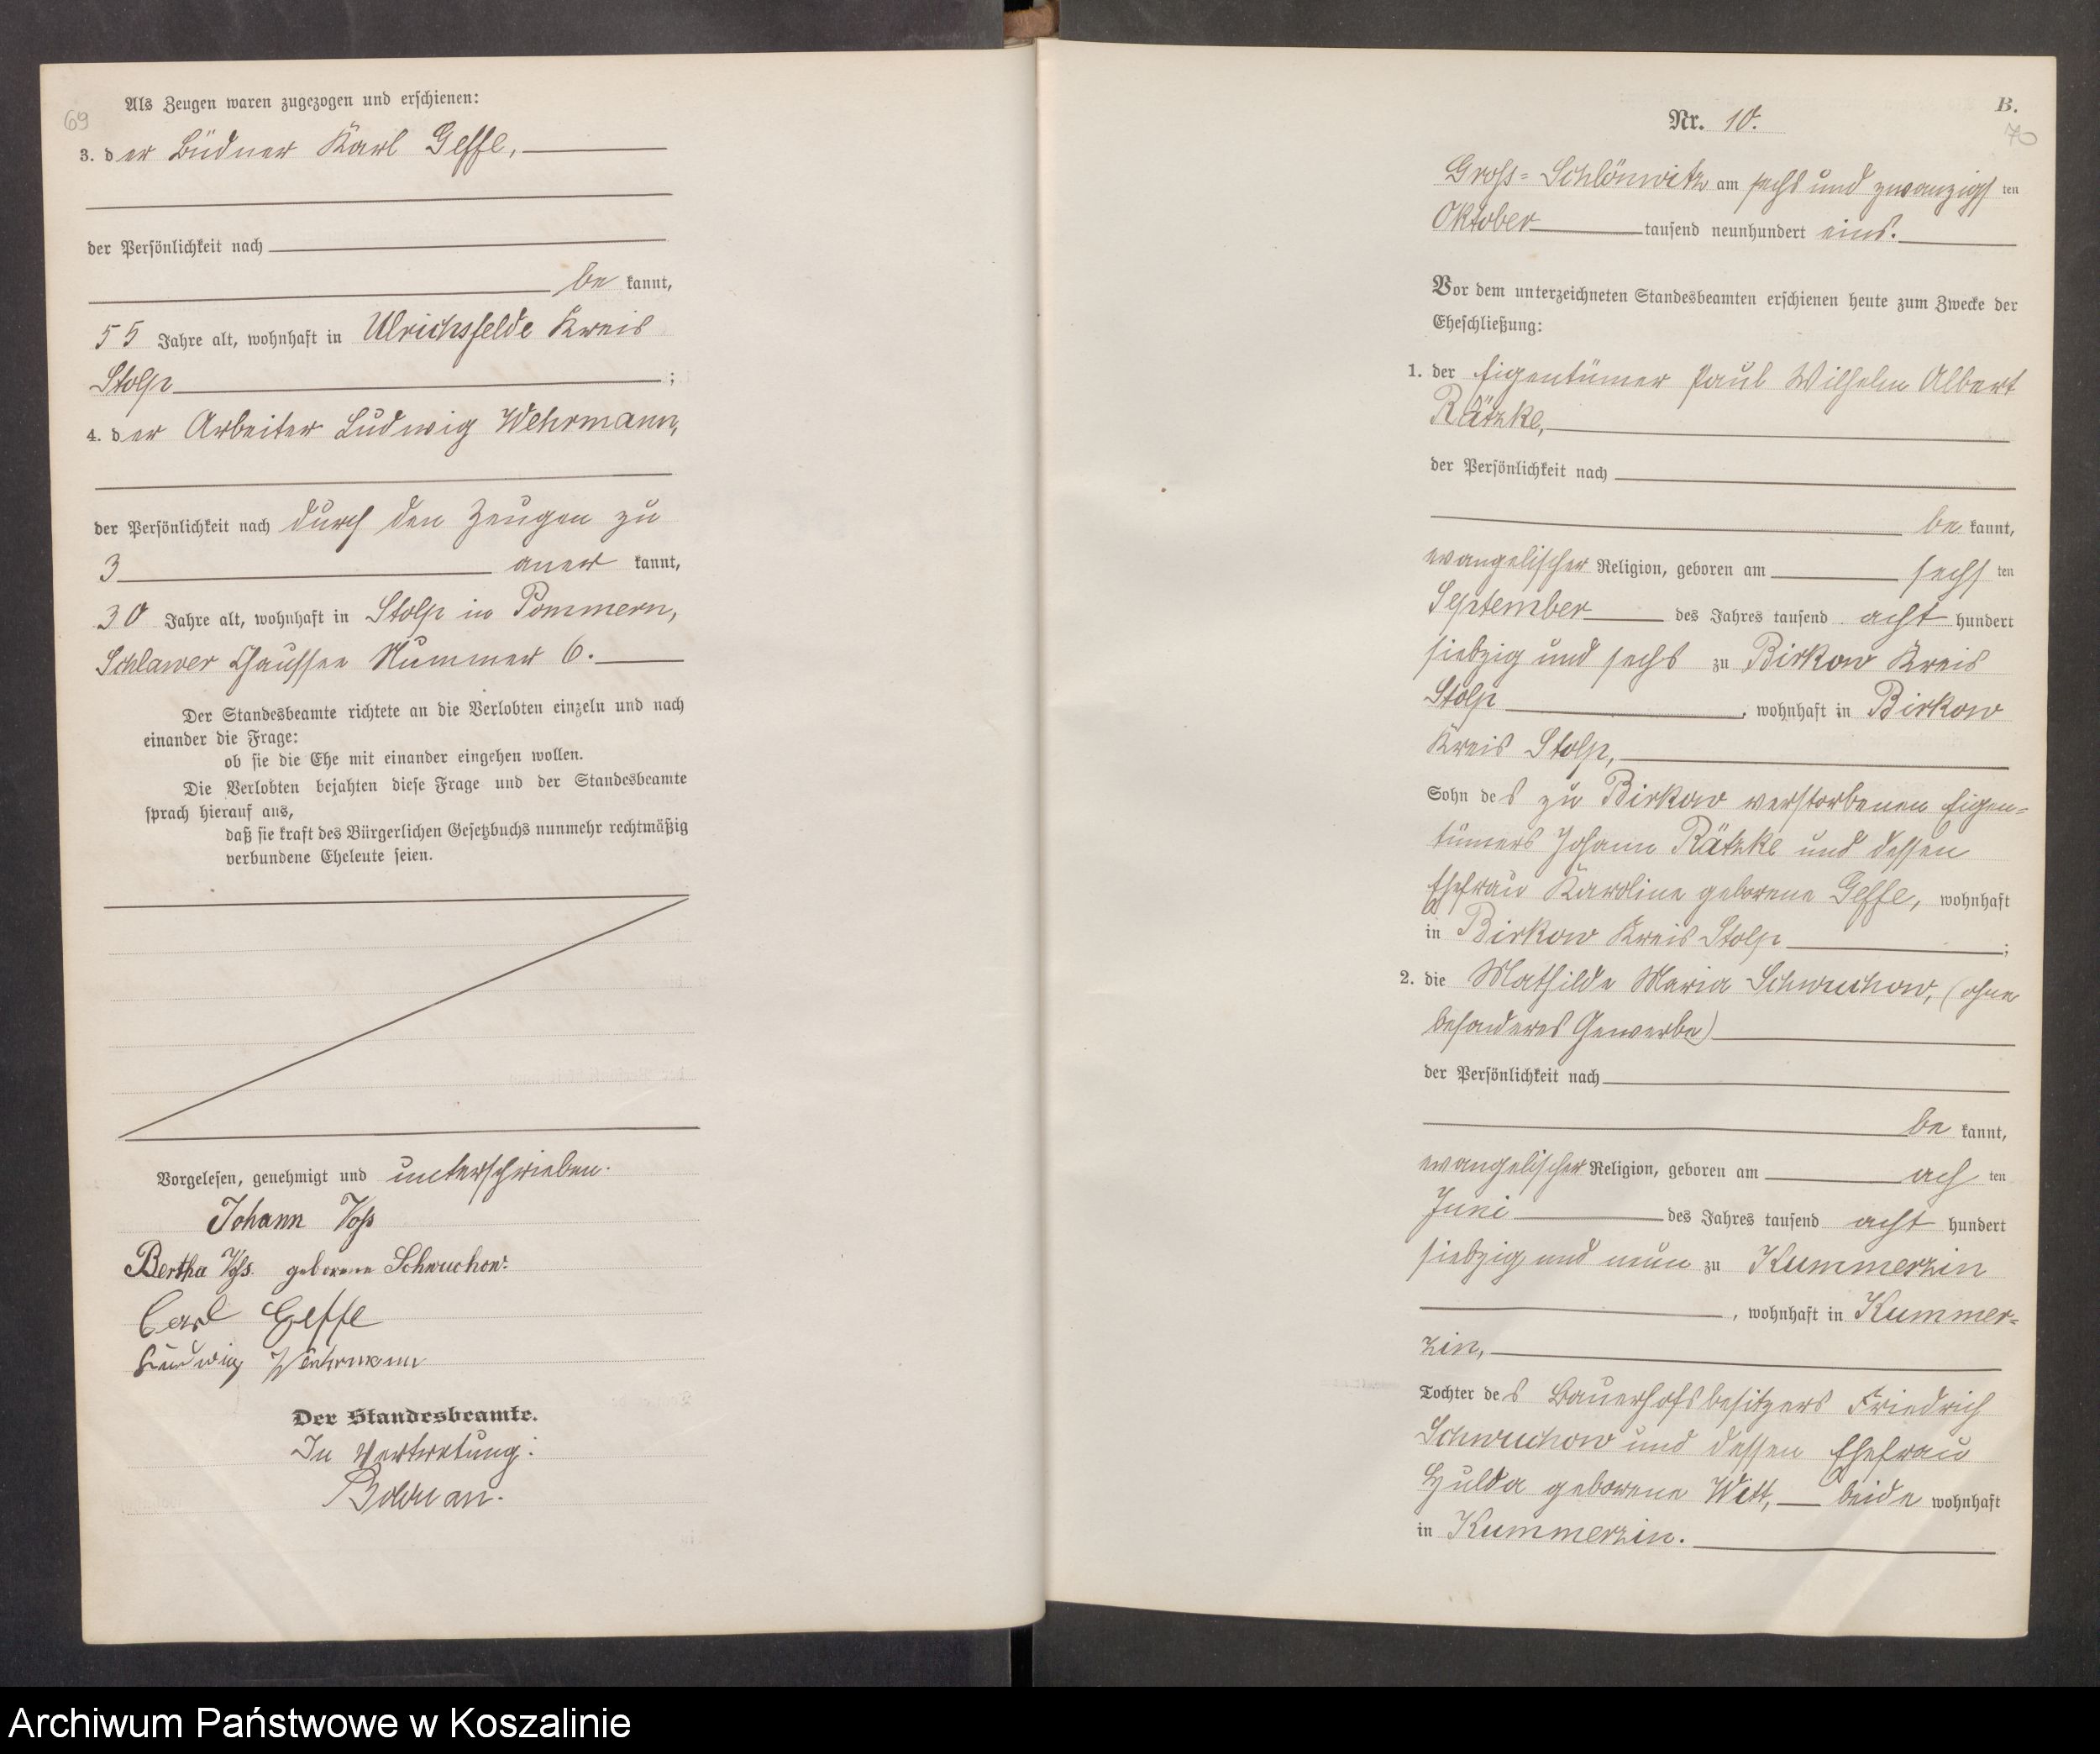 69
Als Zeugen waren zugezogen und erschienen:
3. der Büdner Karl Geffe,
der Persönlichkeit nach
be kannt,
55 Jahre alt, wohnhaft in Ulrichsfelde Kreis
Stolp ;
4. der Arbeiter Ludwig Wehrmann,
der Persönlichkeit nach durch den Zeugen zu
3 aner kannt,
30 Jahre alt, wohnhaft in Stolp in Pommern,
Schlawer Chaussee Nummer 6.
Der Standesbeamte richtete an die Verlobten einzeln und nach
einander die Frage:
ob sie die Ehe mit einander eingehen wollen.
Die Verlobten bejahten diese Frage und der Standesbeamte
sprach hierauf aus,
daß sie kraft des Bürgerlichen Gesetzbuchs nunmehr rechtmäßig
verbundene Eheleute seien.
Vorgelesen, genehmigt und unterschrieben.
Johann Voß
Bertha Voß geborene Schwuchow.
Carl Geffe
Ludwig Wehrmann
Der Standesbeamte.
In Vertretung:
B.
70
Nr. 10.
Gross-Schlönwitz am sechs und zwanzigs ten
Oktober tausend neunhundert eins.
Vor dem unterzeichneten Standesbeamten erschienen heute zum Zwecke der
Eheschließung:
1. der Eigentümer Paul Wilhelm Albert
Rätzke,
der Persönlichkeit nach
be kannt,
evangelischer Religion, geboren am sechs ten
September des Jahres tausend acht hundert
siebzig und sechs zu Birkow Kreis
Stolp , wohnhaft in Birkow
Kreis Stolp,
Sohn des zu Birkow verstorbenen Eigen-
tümers Johann Rätzke und dessen
Ehefrau Karoline geborene Geffe, wohnhaft
in Birkow Kreis Stolp ;
2. die Mathilde Maria Schwuchow, (ohne
besonderes Gewerbe)
der Persönlichkeit nach
be kannt,
evangelischer Religion, geboren am ach ten
Juni des Jahres tausend acht hundert
siebzig und neun zu Kummerzin
, wohnhaft in Kummer-
zin,
Tochter des Bauerhofsbesitzers Friedrich
Schwuchow und dessen Ehefrau
Hulda geborene Witt, beide wohnhaft
in Kummerzin.
Archiwum Państwowe w Koszalinie